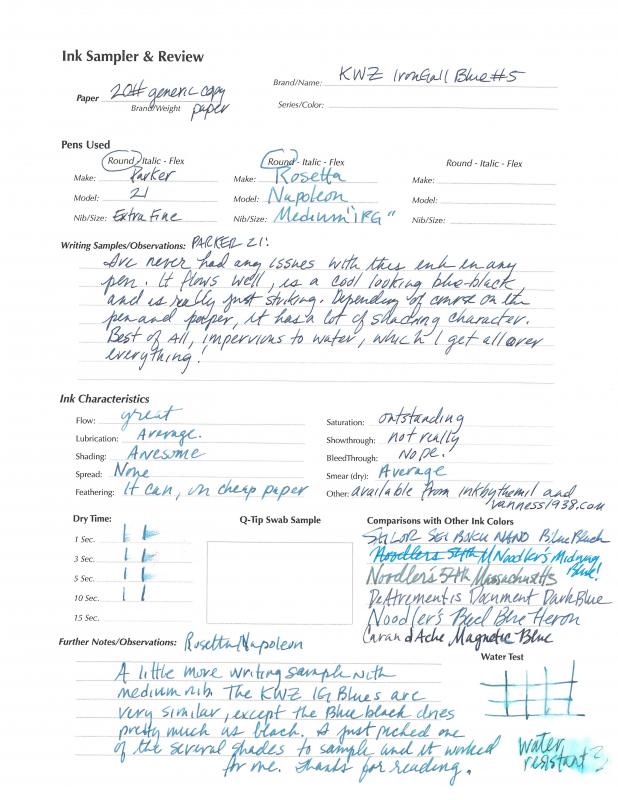 Ink Sampler & Review
Paper 20# generic copy paper
Brand/Weight
Brand/Name: KWZ IronGall Blue #5
Series/Color:
Pens Used
Round - Italic - Flex
Make: Parker
Model: 21
Nib/Size: Extra Fine
Round - Italic - Flex
Make: Rosetta
Model: Napoleon
Nib/Size: Medium "IPG"
Round - Italic - Flex
Make:
Model:
Nib/Size:
Writing Samples/Observations: PARKER 21:
I've never had any issues with this ink in any
pen. It flows well, is a cool looking blue-black
and is really just striking. Depending of course on the
pen and paper, it has a lot of shading character.
Best of All, impervious to water, which I get all over
everything!
Ink Characteristics
Flow: great
Lubrication: Average.
Shading: Awesome
Spread: None
Feathering: It can, on cheap paper
Saturation: outstanding
Showthrough: not really
BleedThrough: Nope.
Smear (dry): Average
Other: available from inkbythemil and
vanness1938.com
Dry Time:
1 Sec.
3 Sec.
5 Sec.
10 Sec.
15 Sec.
Q-Tip Swab Sample
Comparisons with Other Ink Colors
SAILOR SEI BOKU NANO Blue Black
Noodlers 54th M Noodler's Midway
Blue!
Noodler's 54th Massachusetts
DeAtrementis Document Dark Blue
Noodler's Bad Blue Heron
Caran d'Ache Magnetic Blue
Further Notes/Observations: Rosetta/Napoleon
A little more writing sample with
medium nib. The KWZ IG Blues are
very similar, except the Blue black dries
pretty much as black. I just picked one
of the several shades to sample and it worked
for me. Thanks for reading.
Water Test
water
resistant?